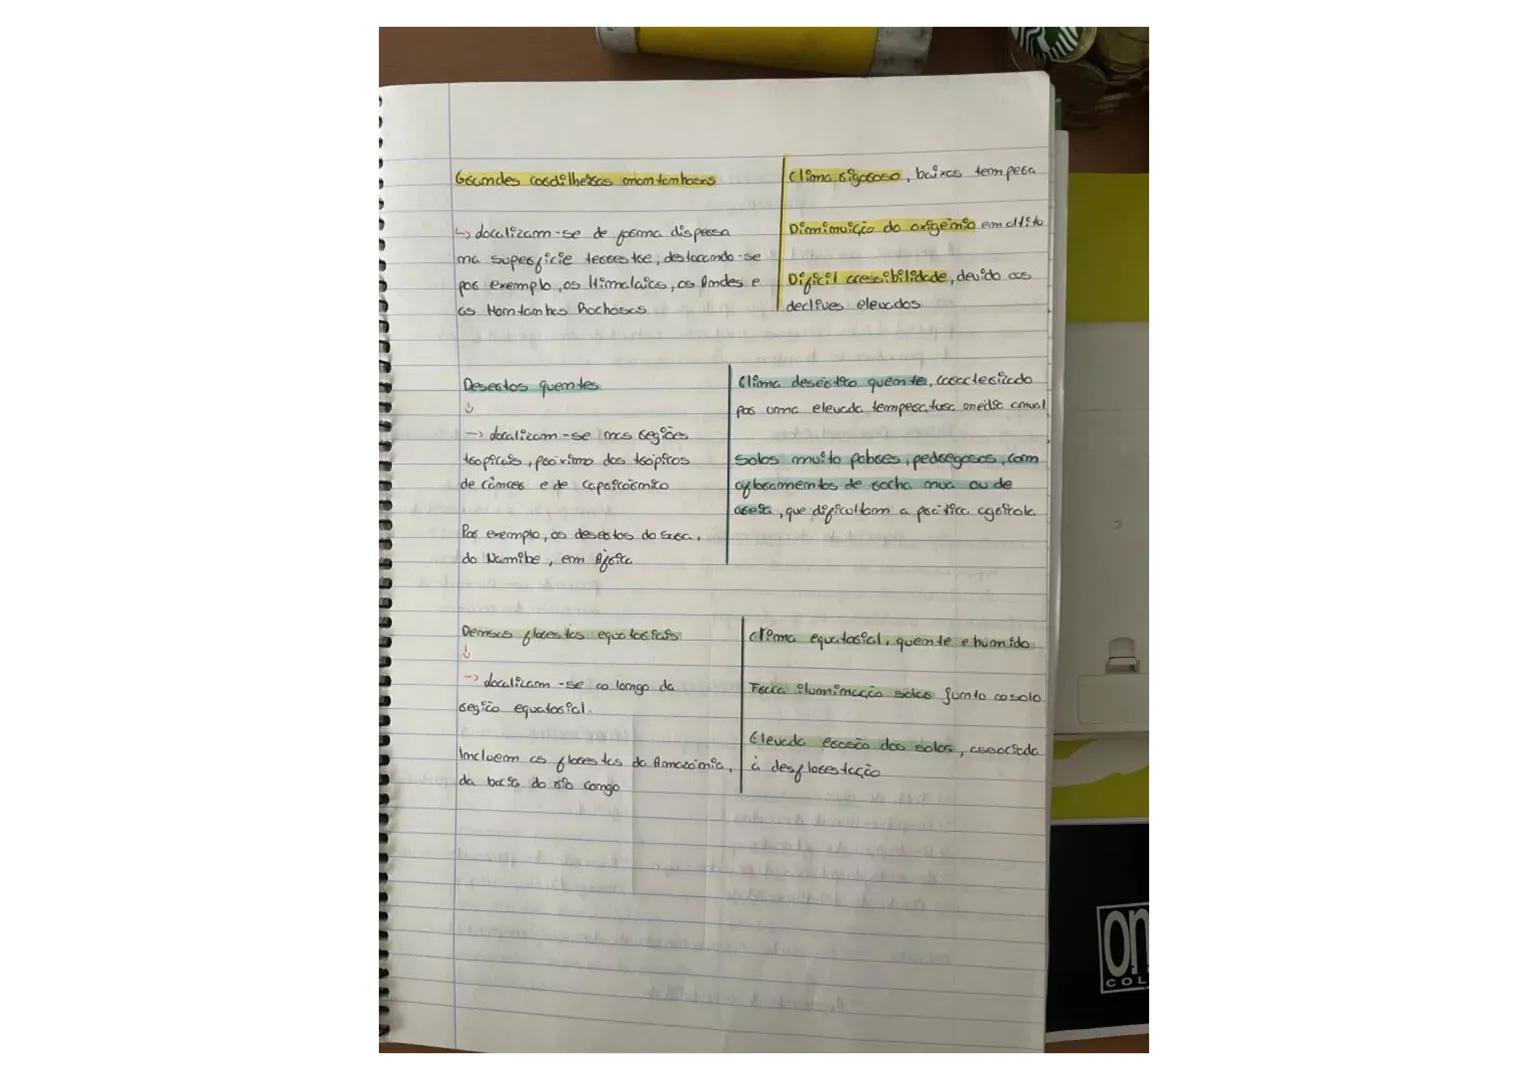 Grandes cordilheiras montanhosas
↳ localizam-se de forma dispersa
na superfície terrestre, destacando-se
por exemplo, os Himalaias, os Andes e
as Montanhas Rochosas
Clima rigoroso, baixas tempera
Diminuição do oxigénio em altitu
Difícil acessibilidade, devido aos
declives elevados
Desertos quentes
↓
→ localizam-se nas regiões
tropicais, próximo dos trópicos
de câncer e de Capricórnio
Por exemplo, os desertos do
do Namibe, em África
Clima desértico quente, caracterizado
por uma elevada temperatura média anual
Solos muito pobres, pedregosos, com
afloramentos de rocha nua ou de
areia, que dificultam a prática agrícola
Densas florestas equatoriais
↓
→ localizam-se ao longo da
região equatorial.
Incluem as florestas da Amazónia,
da bacia do rio congo
Clima equatorial, quente e humido
Fraca iluminação solar junto ao solo
Elevada erosão dos solos, associada
à desflorestação
on
COL